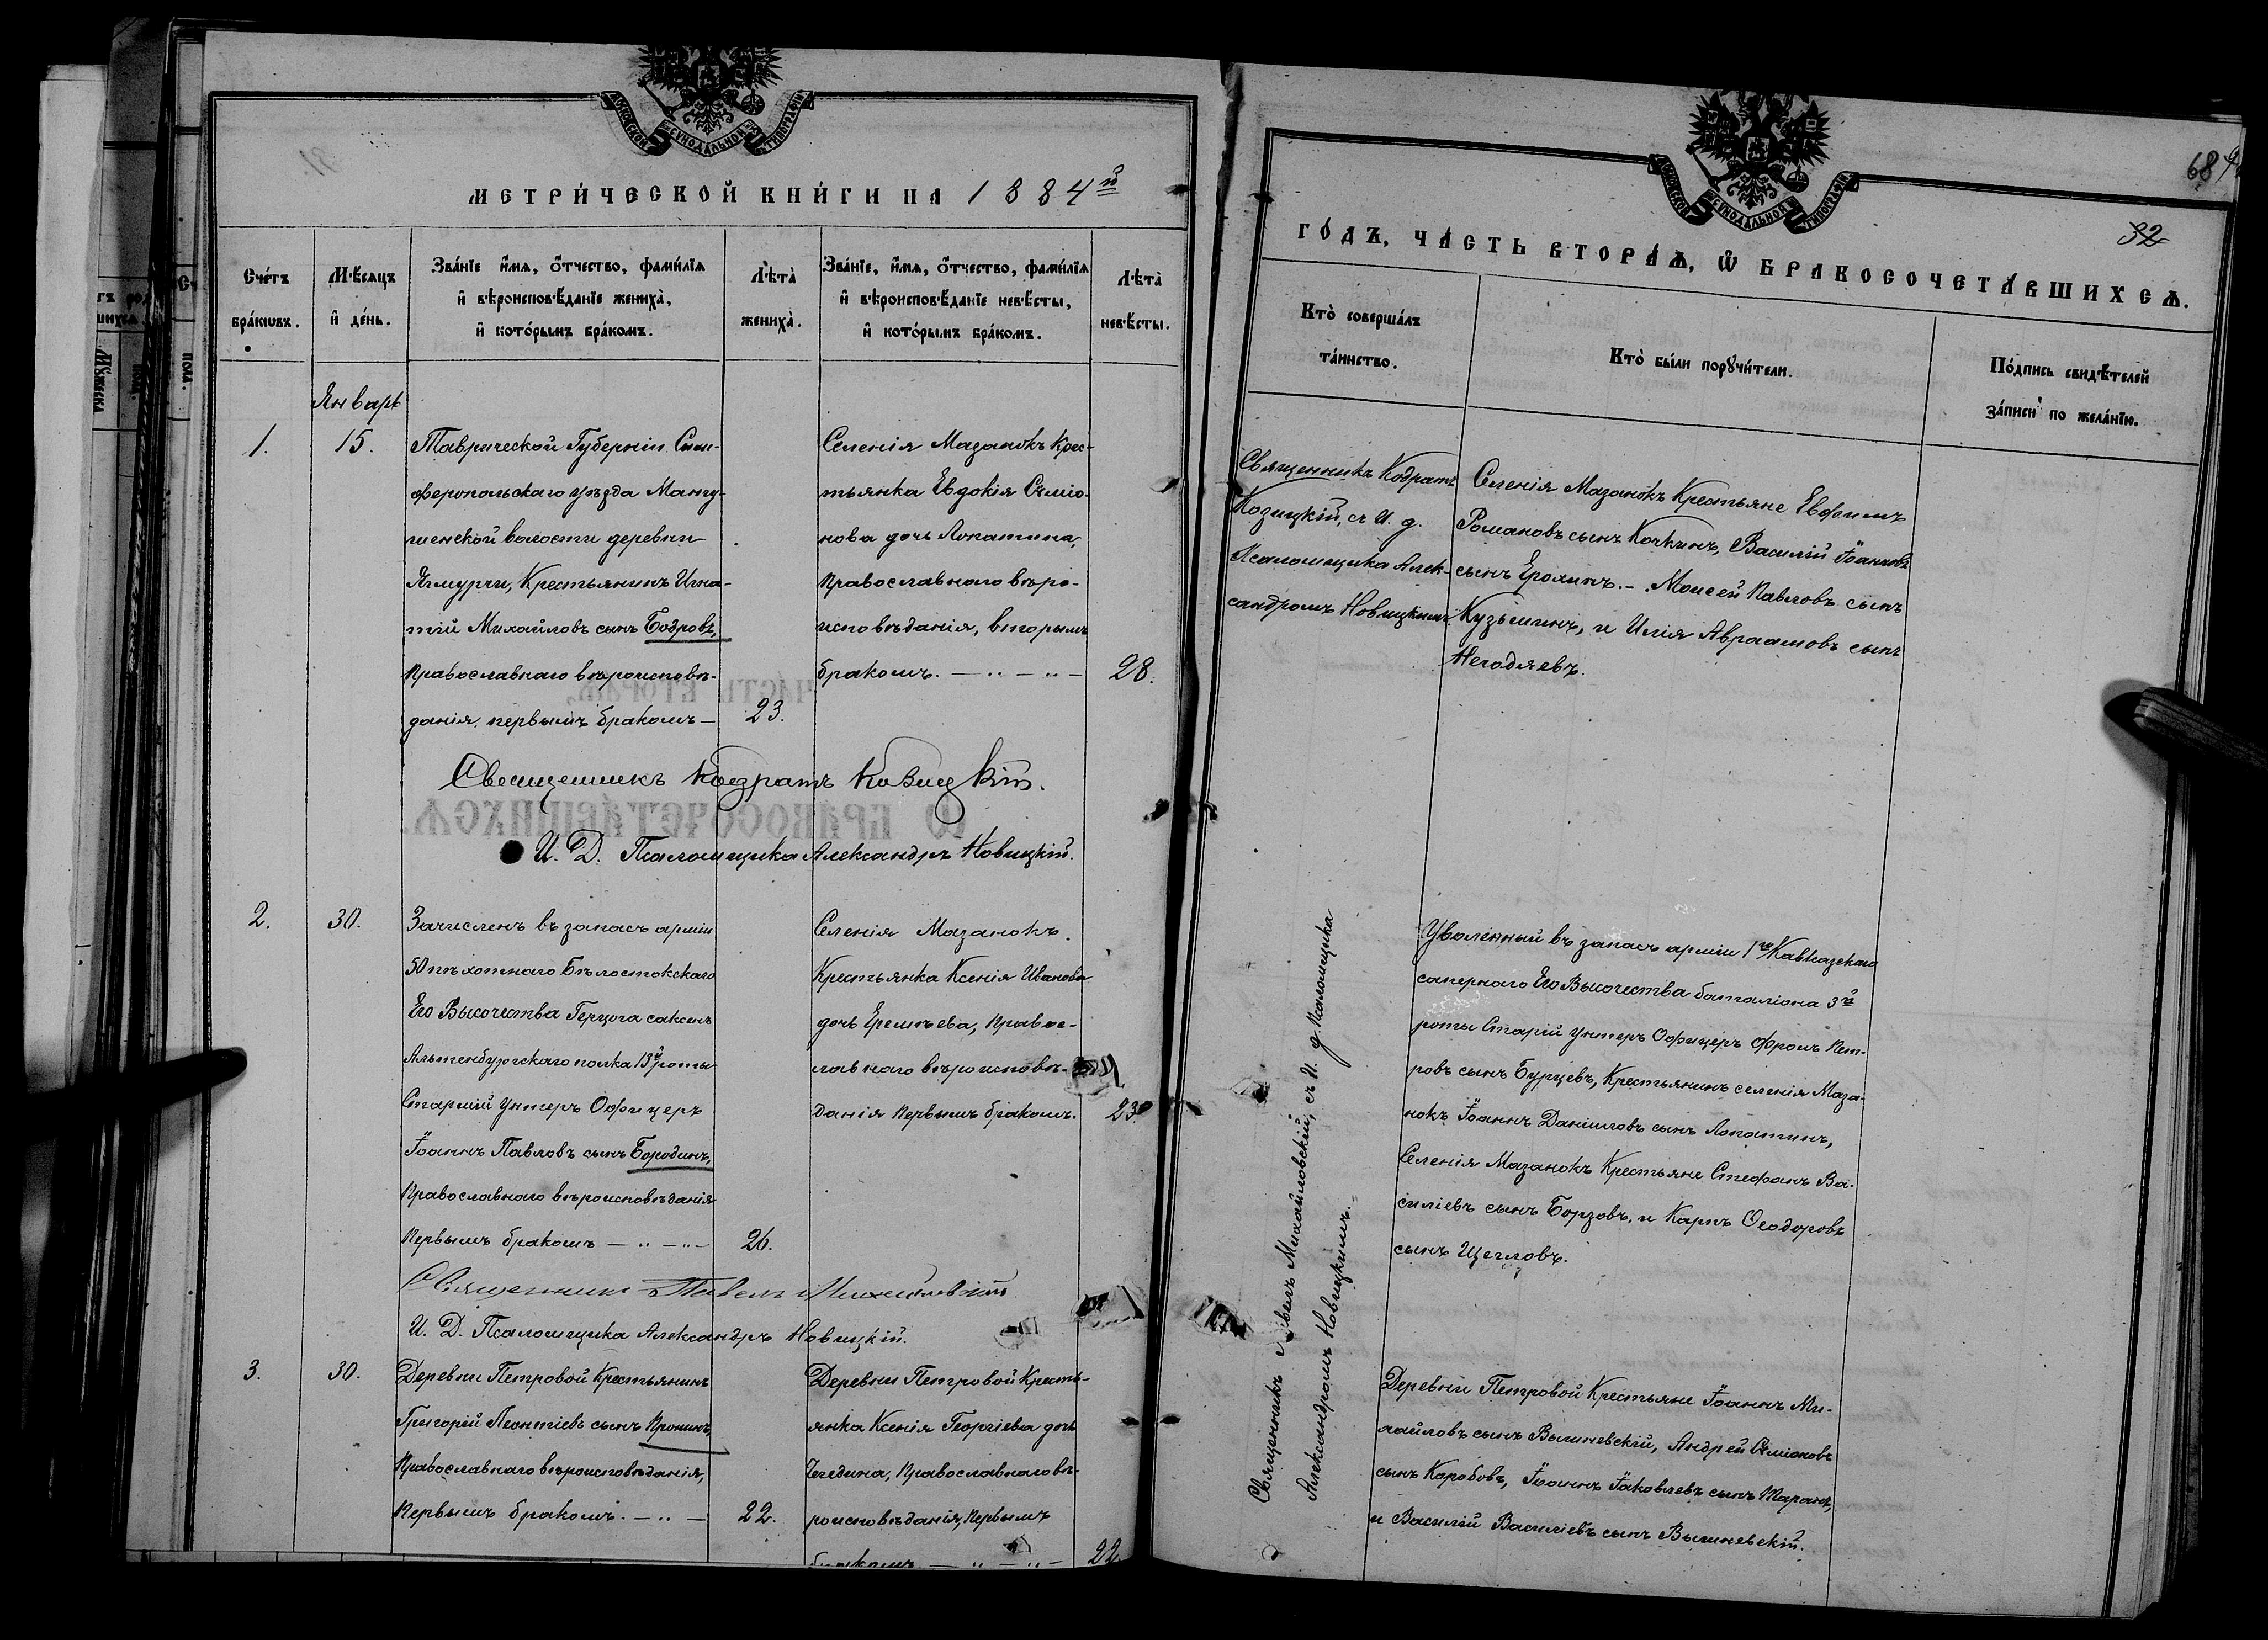 МОСКОВСКОЙ СУНОДАЛЬНОЙ ТИПОГРАФІИ
МЕТРИЧЕСКОЙ КНИГИ НА 1884й
Счетъ браковъ.
Мѣсяцъ и день.
Званіе, имя, отчество, фамилія и вѣроисповѣданіе жениха, и которымъ бракомъ.
Лѣта жениха.
Званіе, имя, отчество, фамилія и вѣроисповѣданіе невѣсты, и которымъ бракомъ.
Лѣта невѣсты.
Январь
1.
15.
Таврической Губерніи Сим-
феропольскаго уѣзда Мангу-
шенской волости деревни
Ягмурчи, Крестьянинъ Игна-
тій Михайловъ сынъ Бодровъ,
Православнаго вѣроисповѣ-
данія, первымъ бракомъ —
23.
Селенія Мазанокъ Крес-
тьянка Евдокія Сѵмео-
нова дочь Лопатина,
Православнаго вѣро-
исповѣданія, вторымъ
бракомъ. — „ — „ —
28.
Священникъ Кодратъ Козицкій.
И. Д. Псаломщика Александръ Новицкій.
2.
30.
Зачисленъ въ запасъ арміи
50 пѣхотнаго Бѣлостокскаго
Его Высочества Герцога саксенъ
Альтенбургскаго полка 13й роты
Старшій Унтеръ Офицеръ
Іоаннъ Павловъ сынъ Бородинъ,
Православнаго вѣроисповѣданія
Первымъ бракомъ — „ — „ —
26.
Селенія Мазанокъ.
Крестьянка Ксенія Иванова
дочь Еремѣева, Правос-
лавнаго вѣроисповѣ-
данія Первымъ бракомъ.
23
Священникъ Павелъ Михайловскій
И. Д. Псаломщика Александръ Новицкій.
3.
30.
Деревни Петровой Крестьянинъ
Григорій Леонтіевъ сынъ Пронинъ,
Православнаго вѣроисповѣданія,
Первымъ бракомъ. — „ —
22.
Деревни Петровой Кресть-
янка Ксенія Георгіева дочь
Чегедина, Православнаго вѣ-
роисповѣданія, Первымъ
бракомъ — „ — „ —
22.
МОСКОВСКОЙ СУНОДАЛЬНОЙ ТИПОГРАФІИ
68
32
ГОДЪ, ЧАСТЬ ВТОРАЯ, Ѡ БРАКОСОЧЕТАВШИХСЯ.
Кто совершалъ таинство.
Кто были поручители.
Подпись свидѣтелей записи по желанію.
Священникъ Кодратъ
Козицкій, съ И. д.
Псаломщика Алек-
сандромъ Новицкимъ.
Селенія Мазанокъ Крестьяне Евфимъ
Романовъ сынъ Кочкинъ, Василій Іоанновъ
сынъ Ерохинъ. — Моисей Павловъ сынъ
Кузьминъ, и Илія Авраамовъ сынъ
Негодяевъ.
Священникъ Павелъ Михайловскій, съ И. д. Псаломщика
Александромъ Новицкимъ.
Уволенный въ запасъ арміи 1го Кавказскаго
сапернаго Его Высочества баталіона 3й
роты Старшій Унтеръ Офицеръ Фролъ Пет-
ровъ сынъ Бурцевъ, Крестьянинъ селенія Маза-
нокъ Іоаннъ Даніиловъ сынъ Лопатинъ,
Селенія Мазанокъ Крестьяне Стефанъ Ва-
силіевъ сынъ Борзовъ, и Карпъ Ѳеодоровъ
сынъ Щегловъ.
Деревни Петровой Крестьяне Іоаннъ Ми-
хайловъ сынъ Вышневскій, Андрей Сѵмеоновъ
сынъ Коробовъ, Іоаннъ Іаковлевъ сынъ Таранъ,
и Василій Василіевъ сынъ Вышневскій.